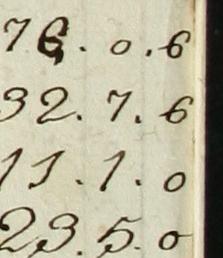 76. 0. 6
32. 7. 6
11. 1. 0
23. 5. 0